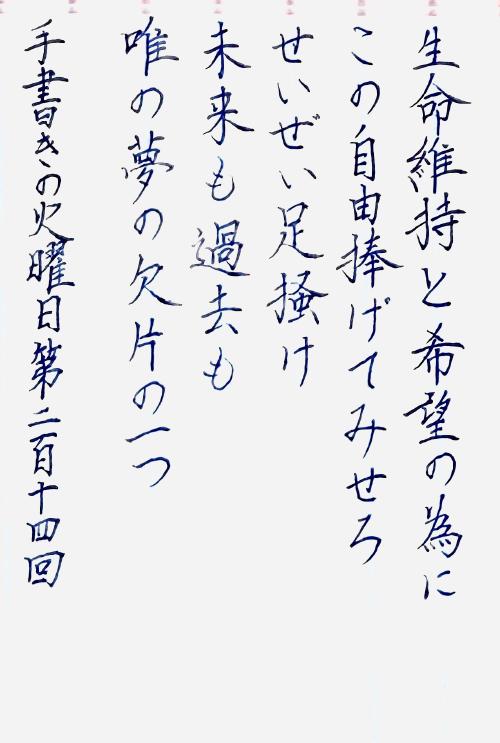 生命維持と希望の為に
この自由捧げてみせろ
せいぜい足掻け
未来も過去も
唯の夢の欠片の一つ
手書きの火曜日第二百十四回